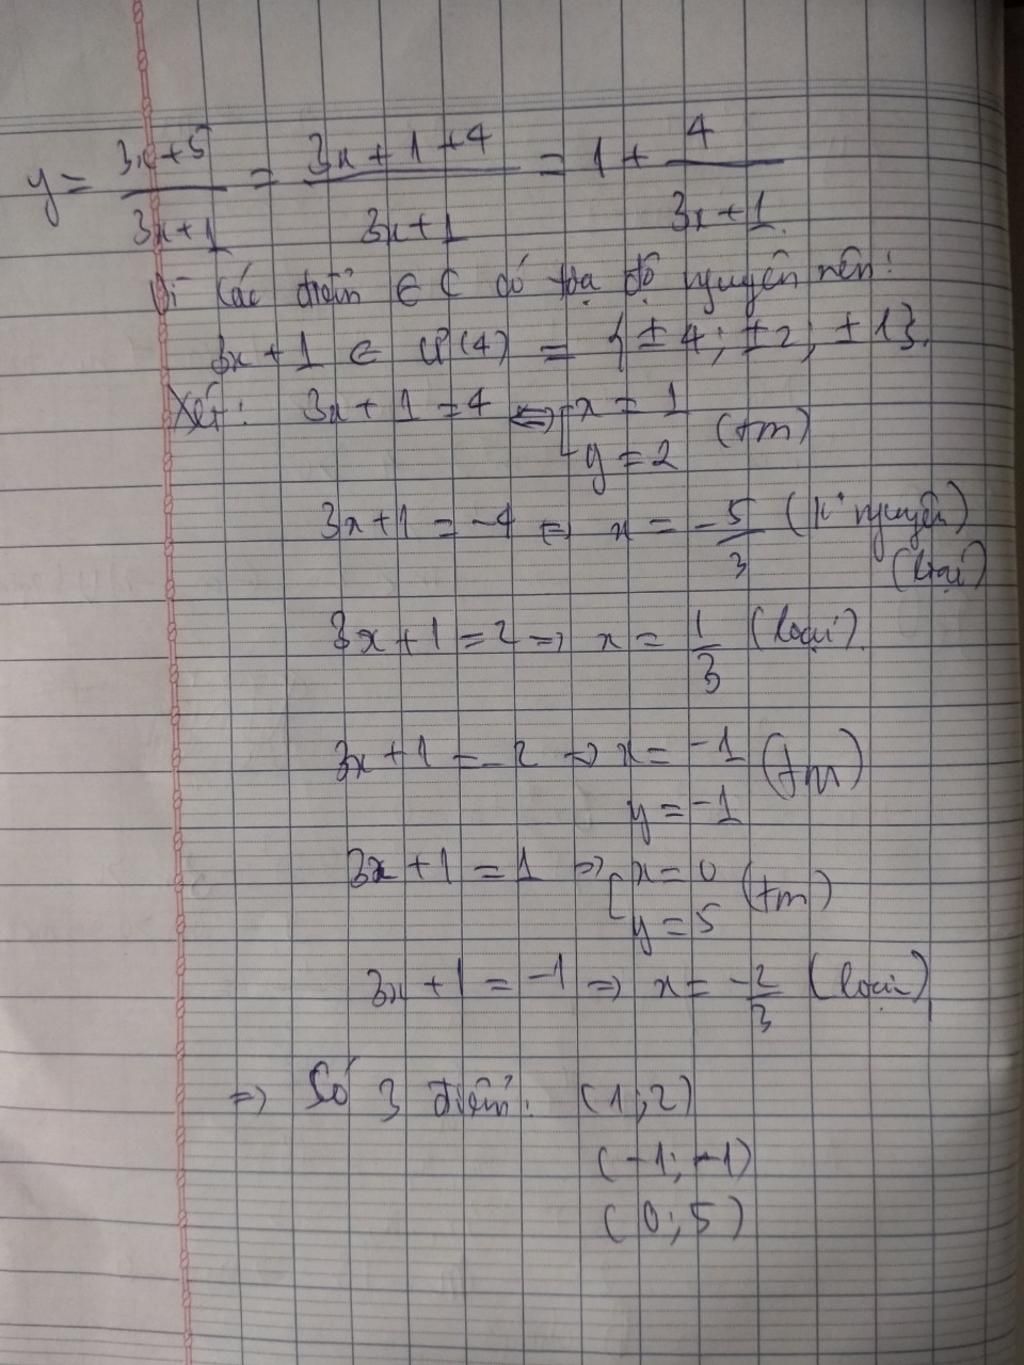 y = \frac{3x+5}{3x+1} = \frac{3x+1+4}{3x+1} = 1 + \frac{4}{3x+1}
Vì các điểm ∈ C có tọa độ nguyên nên:
3x + 1 ∈ Ư(4) = {±4; ±2; ±1}.
Xét: 3x + 1 = 4 ⇔ [x = 1
y = 2 (tm)
3x + 1 = -4 ⇒ x = -\frac{5}{3} (k° nguyên)
(loại)
3x + 1 = 2 ⇒ x = \frac{1}{3} (loại).
3x + 1 = -2 ⇒ x = -1 (tm)
y = -1
3x + 1 = 1 ⇒ [x = 0
y = 5 (tm)
3x + 1 = -1 ⇒ x = -\frac{2}{3} (loại)
⇒ Có 3 điểm: (1;2)
(-1; -1)
(0; 5)